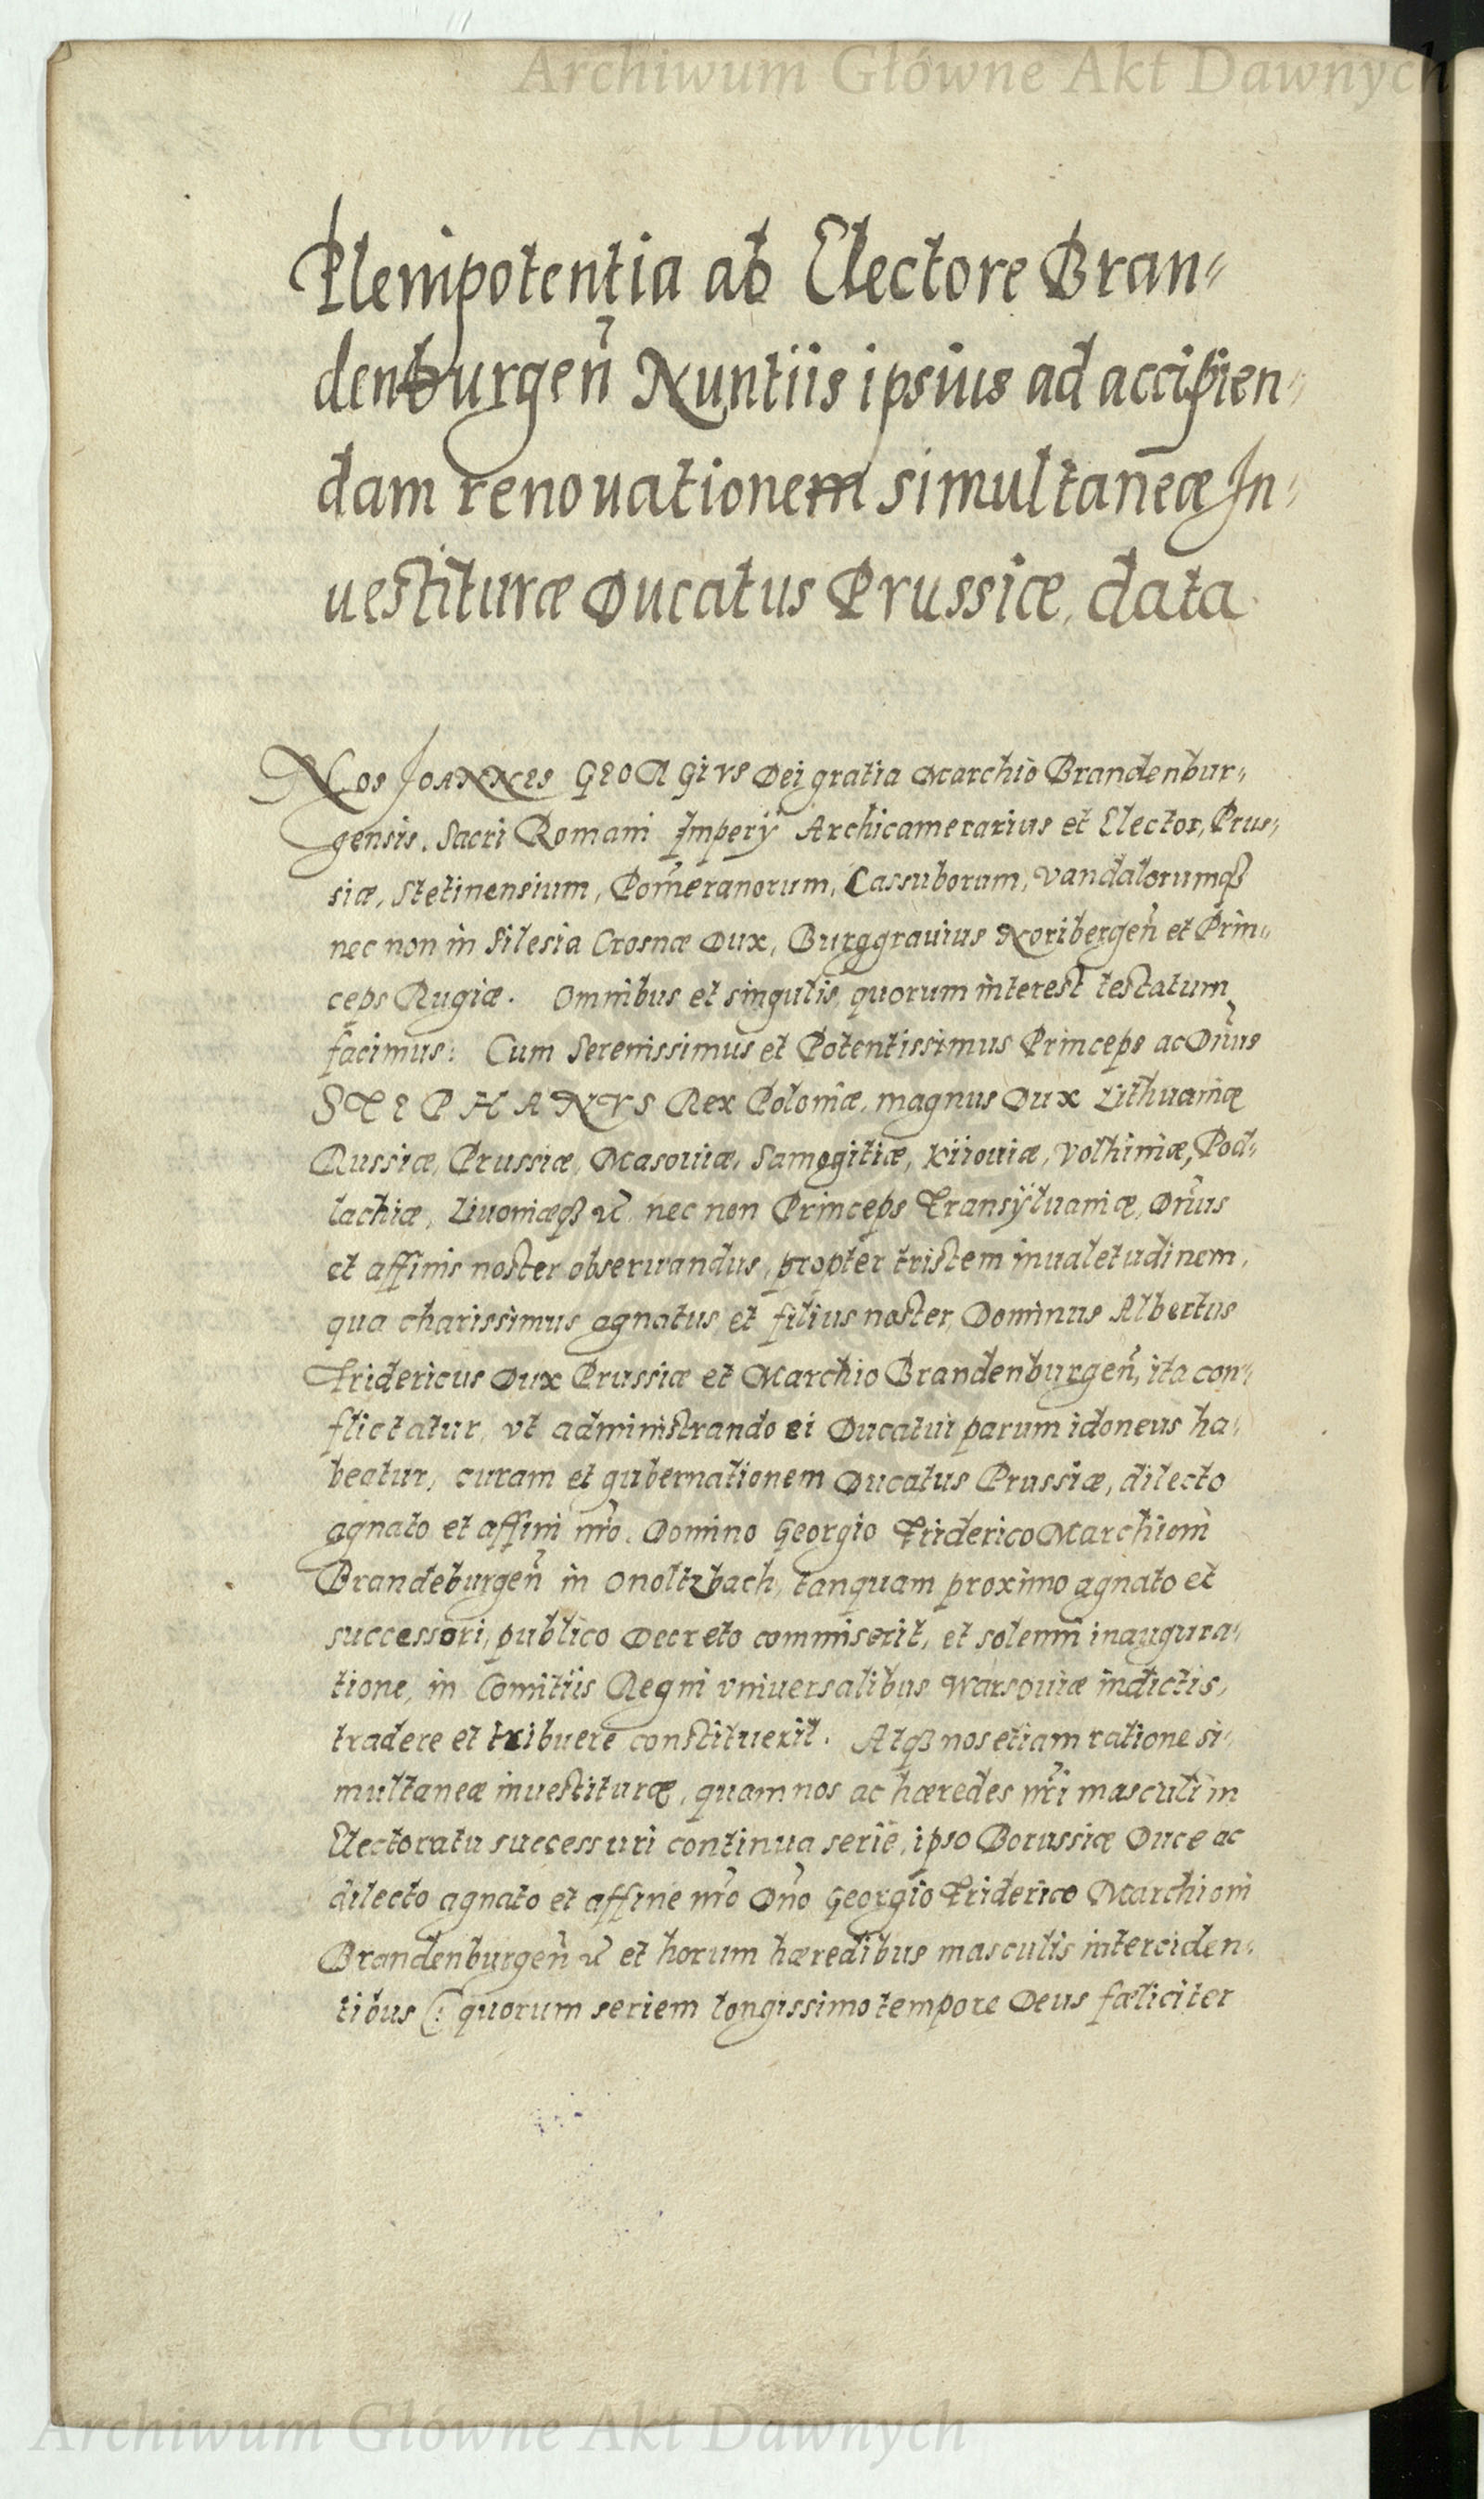 Archiwum Główne Akt Dawnych
Plenipotentia ab Electore Bran-
denburgen̄ Nuntiis ipsius ad accipien-
dam renouationem simultaneæ In-
uestituræ Ducatus Prussiæ, data
Nos IOANNES GEORGIVS Dei gratia Marchio Brandenbur-
gensis, Sacri Romani Imperÿ Archicamerarius et Elector, Prus-
siæ, Stetinensium, Pom̄eranorum, Cassuborum, Vandalorumqꝫ
nec non in Silesia Crosnæ Dux, Burggrauius Noribergen̄ et Prin-
ceps Rugiæ. Omnibus et singulis, quorum interest testatum
facimus: Cum Serenissimus et Potentissimus Princeps ac Dn̄us
STEPHANVS Rex Poloniæ, magnus Dux Lithuaniæ
Russiæ, Prussiæ, Masouiæ, Samogitiæ, Kiiouiæ, Volhiniæ, Pod-
lachiæ, Liuoniæqꝫ ꝛc. nec non Princeps Transÿluaniæ, Dn̄us
et affinis noster obseruandus, propter tristem inualetudinem,
qua charissimus agnatus et filius noster, Dominus Albertus
Fridericus Dux Prussiæ et Marchio Brandenburgen̄, ita con-
flictatur, vt administrando ei Ducatui parum idoneus ha-
beatur, curam et gubernationem Ducatus Prussiæ, dilecto
agnato et affini nr̄o, Domino Georgio Friderico Marchioni
Brandeburgen̄ in Onoltzbach, tanquam proximo agnato et
successori, publico Decreto commiserit, et solenni inaugura-
tione, in Comitiis Regni vniuersalibus Warsouiæ indictis,
tradere et tribuere constituerit. Atqꝫ nos etiam ratione si-
multaneæ inuestituræ, quam nos ac hæredes nr̄i masculi in
Electoratu successuri continua serie, ipso Borussiæ Duce ac
dilecto agnato et affine nr̄o Dn̄o Georgio Friderico Marchioni
Brandenburgen̄ ꝛc et horum hæredibus masculis interciden-
tibus (: quorum seriem longissimo tempore Deus fæliciter
Archiwum Główne Akt Dawnych